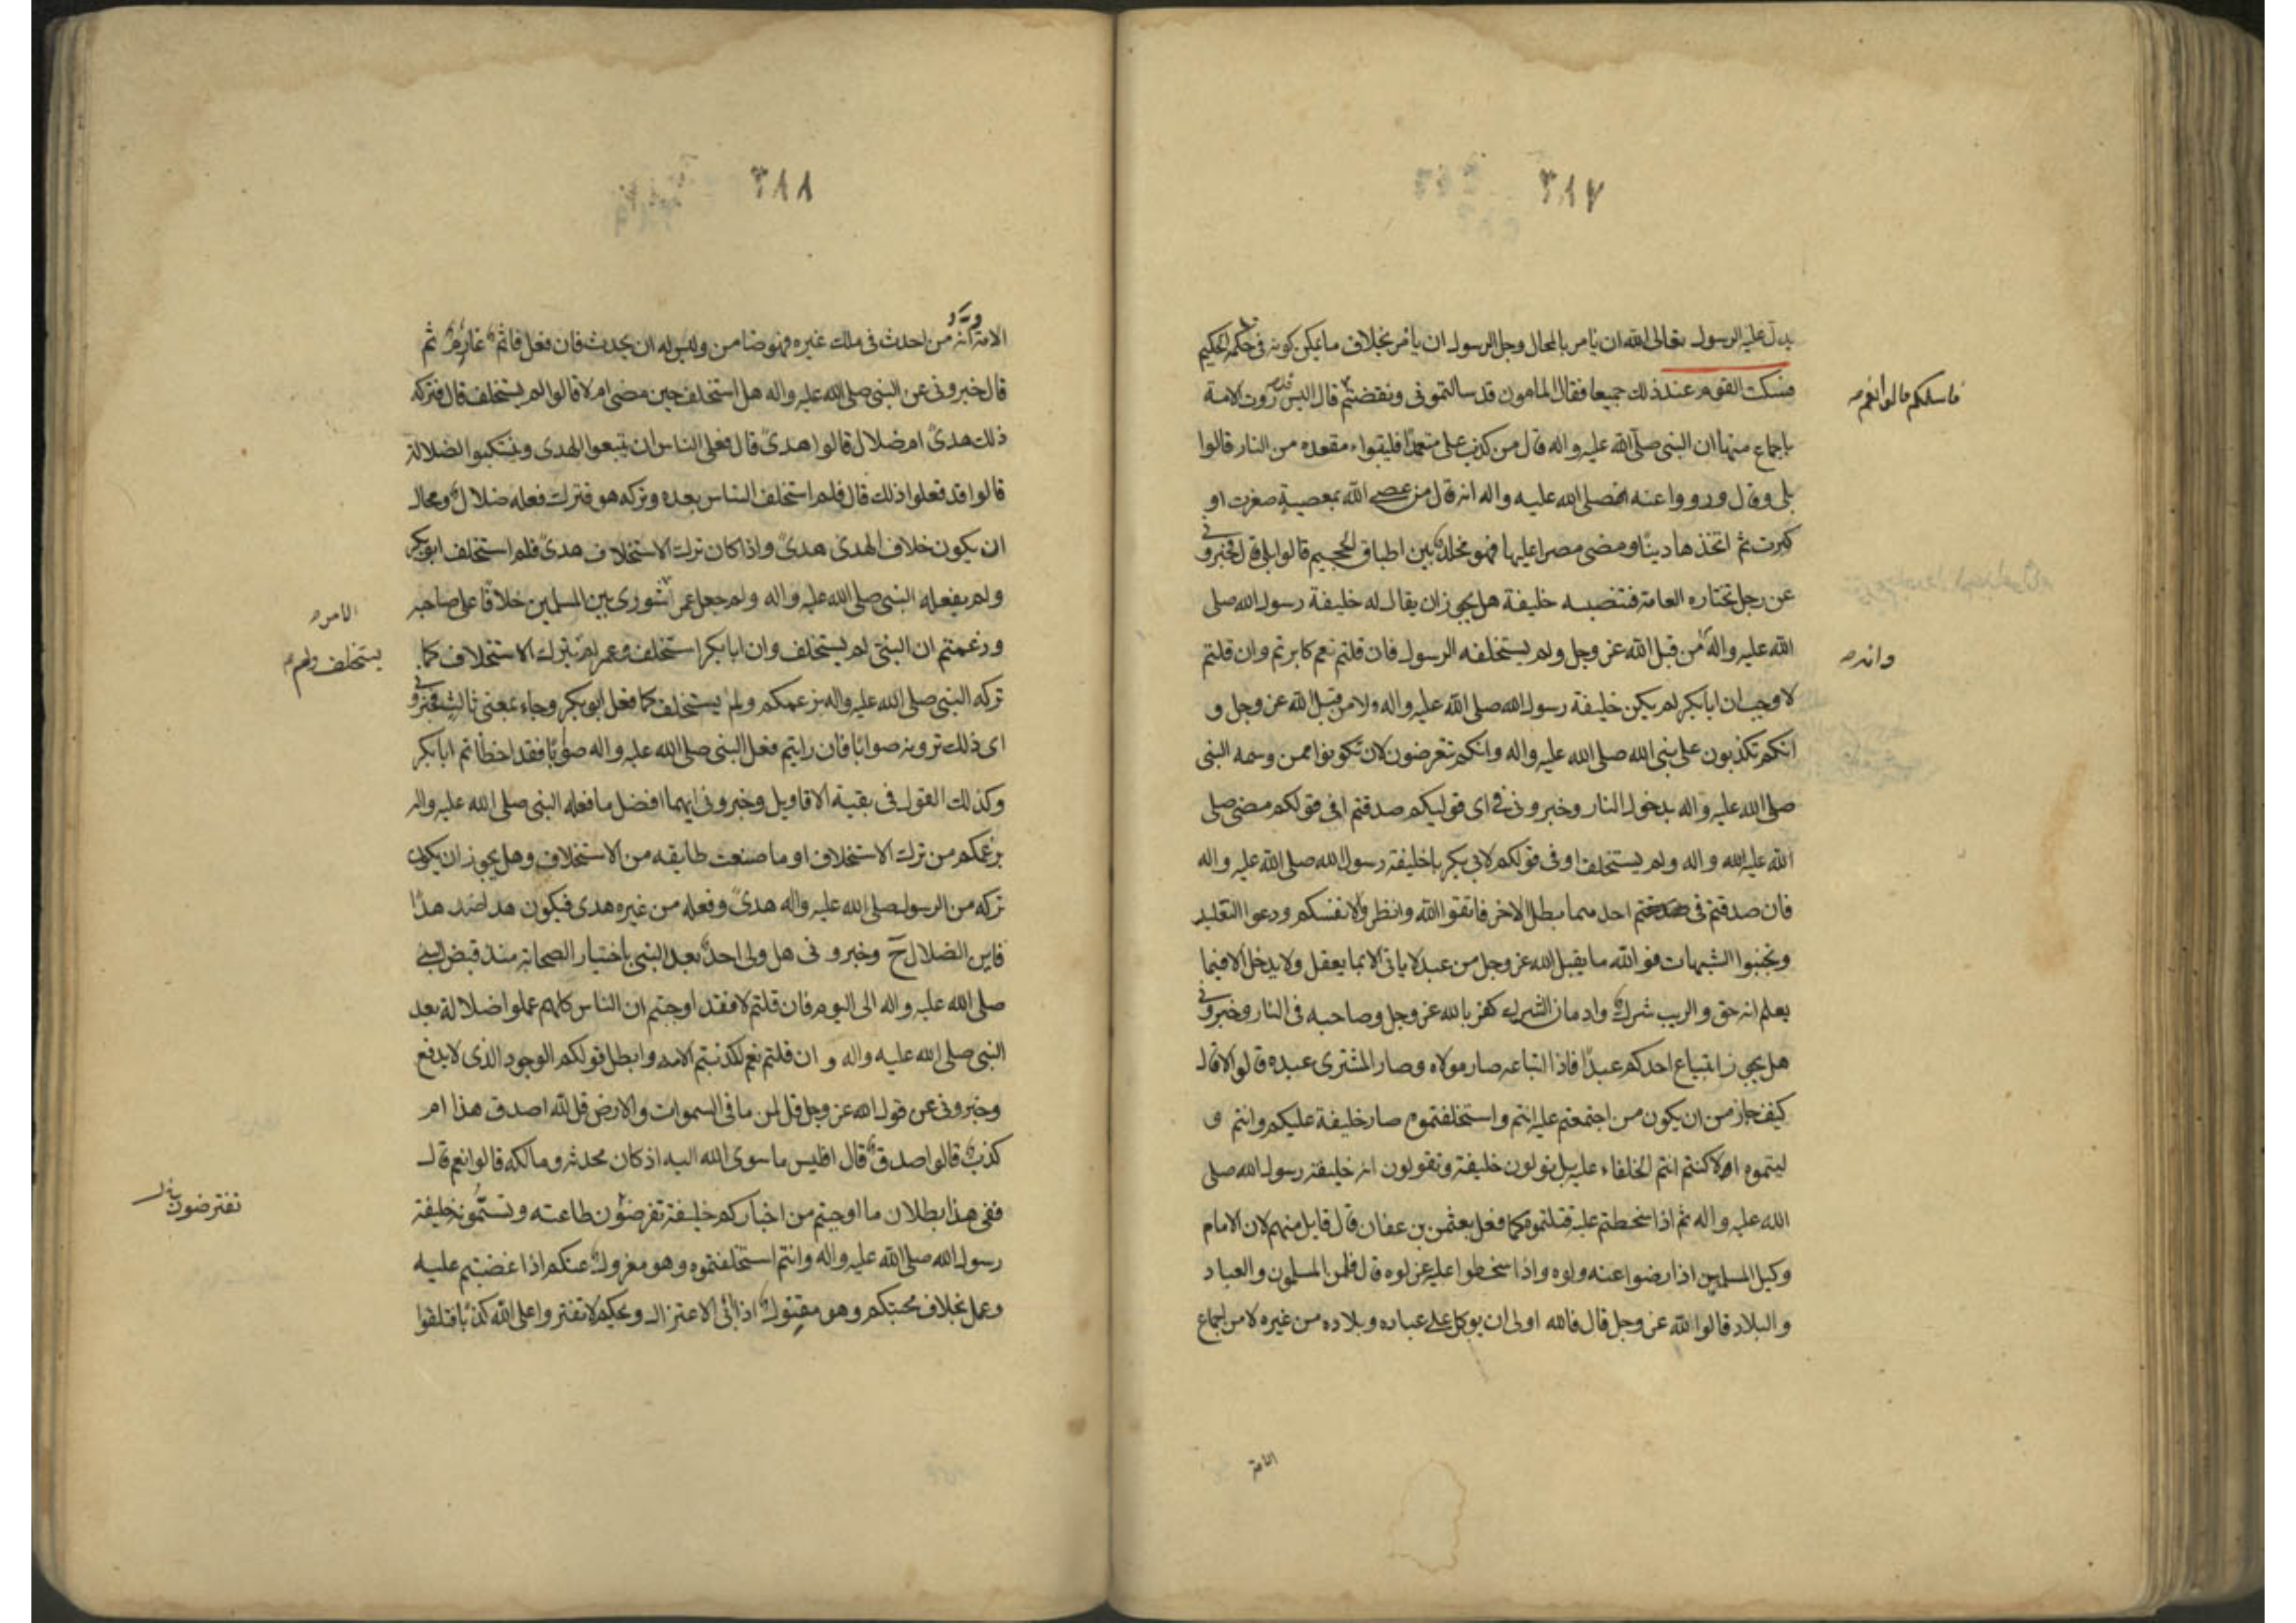 ٣٨٧
يدل عليه الرسول تعالى الله ان يامر بالمحال وجل الرسول ان يامر بخلاف ما يمكن كونه في حكمه الحكيم
فسكت القوم عند ذلك جميعا فقال المامون قد سالتموني ونقضتم قال اليس روت الامة
فاسئلكم قالوا نعم
باجماع منها ان النبي صلى الله عليه واله قال من كذب علي متعمدا فليتبواء مقعده من النار قالوا
بلى وقال ورووا عنه صلى الله عليه واله انه قال من عصى الله بمعصية صغرت او
كبرت ثم اتخذها دينا ومضى مصرا عليها فهو مخلد بين اطباق الجحيم قالوا بلى قال فخبروني
عن رجل تختاره العامة فتنصبه خليفة هل يجوز ان يقال له خليفة رسول الله صلى
الله عليه واله من قبل الله عز وجل ولم يستخلفه الرسول فان قلتم نعم كابرتم وان قلتم
وانه
لا وجب ان ابابكر لم يكن خليفة رسول الله صلى الله عليه واله ولا من قبل الله عز وجل و
انكم تكذبون على نبي الله صلى الله عليه واله وانكم تعرضون لان تكونوا ممن وسمه النبي
صلى الله عليه واله بدخول النار وخبروني في اي قوليكم صدقتم افي قولكم مضى صلى
الله عليه الله واله ولم يستخلف او في قولكم لابي بكر يا خليفة رسول الله صلى الله عليه واله
فان صدقتم في احدهما بطل الاخر فاتقوا الله وانظروا لانفسكم ودعوا التقليد
وتجنبوا الشبهات فو الله ما يقبل الله عز وجل من عبد لا ياتي الا بما يعقل ولا يدخل الا فيما
يعلم انه حق والريب شرك وادمان الشرك كفر بالله عز وجل وصاحبه في النار وخبروني
هل يجوز ابتياع احدكم عبدا فاذا ابتاعه صار مولاه وصار المشتري عبده قالوا لا قال
كيف جاز من ان يكون من اجتمعتم عليه انتم واستخلفتموه صار خليفة عليكم وانتم و
ليتموه الا كنتم انتم الخلفاء عليه بل تولون خليفة وتقولون انه خليفة رسول الله صلى
الله عليه واله ثم اذا سخطتم عليه قتلتموه كما فعل بعثمن بن عفان قال قايل منهم لان الامام
وكيل المسلمين اذا رضوا عنه ولوه واذا سخطوا عليه عزلوه قال فلمن المسلمون والعباد
والبلاد قالوا لله عز وجل قال فالله اولى ان يوكل على عباده وبلاده من غيره لا من اجماع
الامة
٣٨٨
الامة انه من احدث في ملك غيره فهو ضامن وليس له ان يحدث فان فعل فاثم غارم ثم
قال خبروني عن النبي صلى الله عليه واله هل استخلف حين مضى ام لا قالوا لم يستخلف قال فتركه
ذلك هدى ام ضلال قالوا هدى قال فعلى الناس ان يتبعوا الهدى ويتنكبوا الضلالة
قالوا قد فعلوا ذلك قال فلم استخلف الناس بعده وتركه هو فترك فعله ضلال ومحال
ان يكون خلاف الهدى هدى واذا كان ترك الاستخلاف هدى فلم استخلف ابو بكر
ولم يفعله النبي صلى الله عليه واله ولم جعل عمر شورى بين المسلمين خلافا على صاحبه
الامر
وزعمتم ان النبي لم يستخلف وان ابا بكر استخلف وعمر لم يترك الاستخلاف كما
يستخلف ولم
تركه النبي صلى الله عليه واله بزعمكم ولم يستخلف كما فعل ابو بكر وجاء بمعنى ثالث فخبروني
اي ذلك ترونه صوابا فان رايتم فعل النبي صلى الله عليه واله صوابا فقد اخطاتم ابا بكر
وكذلك القول في بقية الاقاويل وخبروني ايهما افضل ما فعله النبي صلى الله عليه واله
بزعمكم من ترك الاستخلاف او ما صنعت طايفه من الاستخلاف وهل يجوز ان يكون
تركه من الرسول صلى الله عليه واله هدى وفعله من غيره هدى فيكون هدا ضد هدا
فاين الضلال ح وخبروني هل ولي احد بعد النبي باختيار الصحابة منذ قبض النبي
صلى الله عليه واله الى اليوم فان قلتم لا فقد اوجبتم ان الناس كلهم عملوا ضلالة بعد
النبي صلى الله عليه واله و ان قلتم نعم كذبتم الامة وابطل قولكم الوجود الذي لا يدفع
وخبروني عن قول الله عز وجل قل لمن ما في السموات والارض قل لله اصدق هذا ام
كذب قالوا صدق قال افليس ما سوى الله اليه اذ كان محدثه ومالكه قالوا نعم قال
ففي هذا بطلان ما اوجبتم من اخباركم خليفة تفرضون طاعته وتسمونه خليفة
تفترضون
رسول الله صلى الله عليه واله وانتم استخلفتموه وهو معزول عنكم اذا غضبتم عليه
وعمل بخلاف محبتكم وهو مقتول اذا ابى الاعتزال ويحكم لا تفتروا على الله كذبا فتلقوا